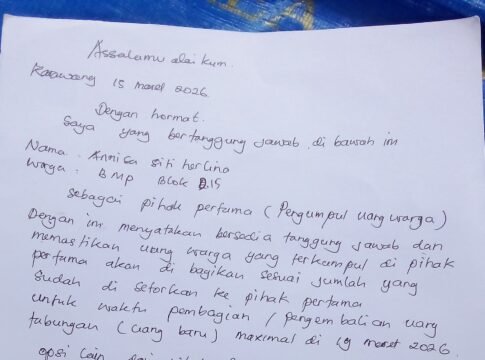 Assalamu alai kum.
Karawang 15 maret 2026
Dengan hormat.
Saya yang bertanggung jawab di bawah ini
Nama : Annisa siti herlina
Warga : BMP Blok D.15
sebagai pihak pertama (Pengumpul uang warga)
Dengan ini menyatakan bersedia tanggung jawab dan
memastikan uang warga yang terkumpul di pihak
pertama akan di bagikan sesuai jumlah yang
sudah di setorkan ke pihak pertama
untuk waktu pembagian / pengembalian uang
tabungan (uang baru) maksimal di 19 maret 2026.
opsi lain